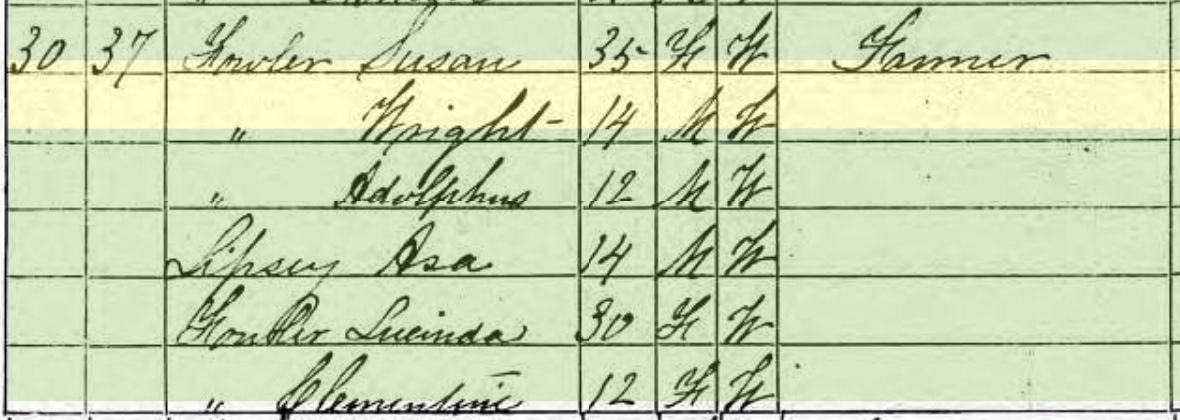 30 37 Fowler Susan 35 F W Farmer
" Wright 14 M W
" Adolphus 12 M W
Lipsey Asa 14 M W
Fowler Lucinda 30 F W
" Clementine 12 F W